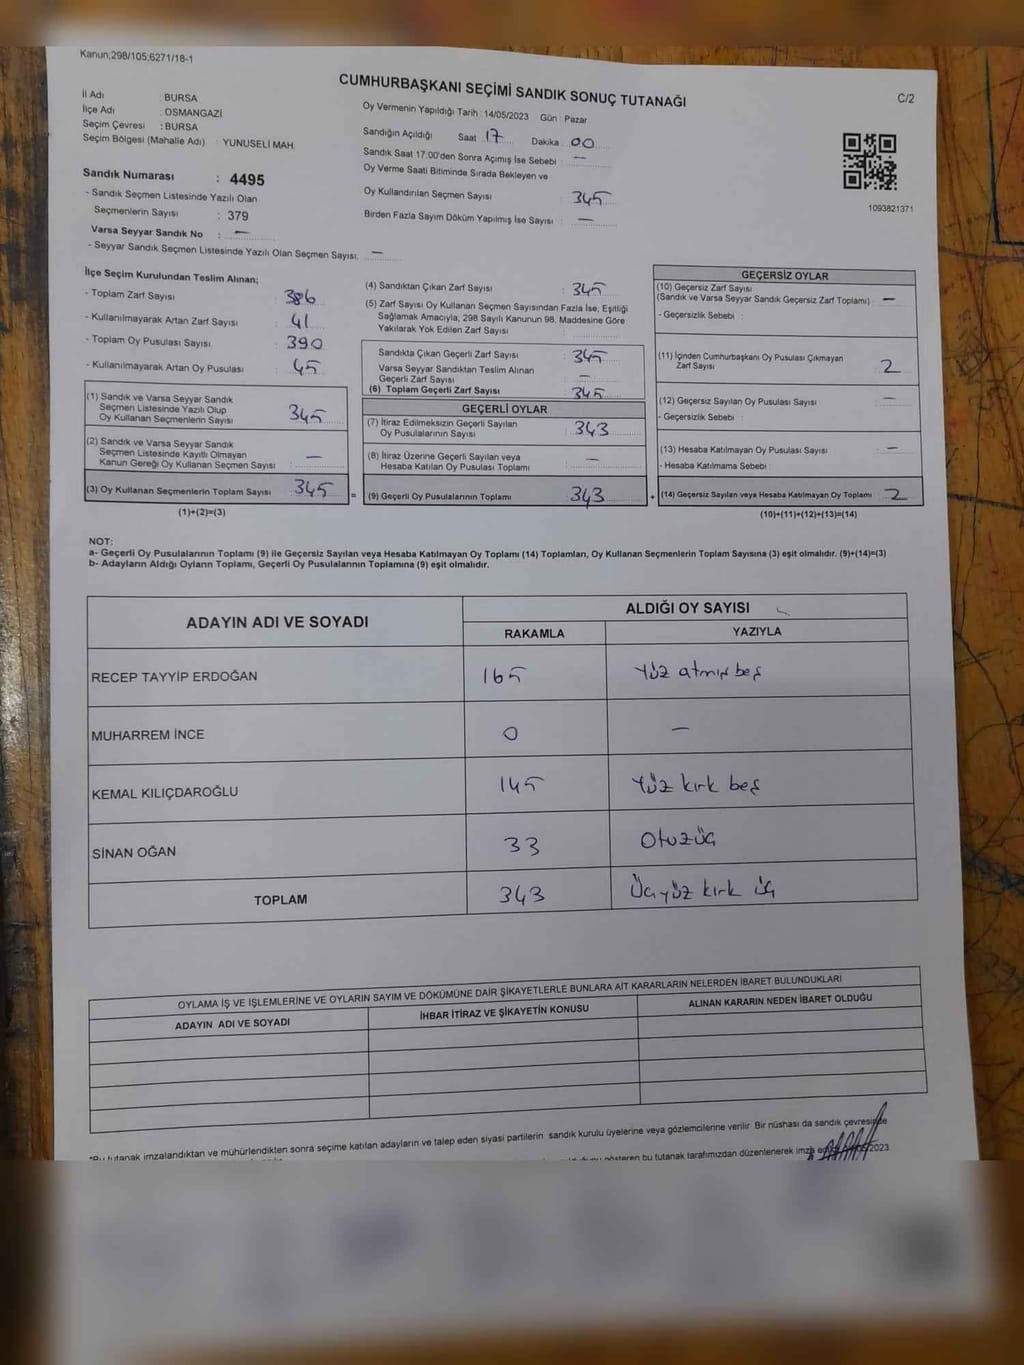 Kanun;298/105;6271/18-1
CUMHURBAŞKANI SEÇİMİ SANDIK SONUÇ TUTANAĞI
C/2
İl Adı : BURSA
İlçe Adı : OSMANGAZİ
Seçim Çevresi : BURSA
Seçim Bölgesi (Mahalle Adı) : YUNUSELİ MAH
Oy Vermenin Yapıldığı Tarih : 14/05/2023 Gün : Pazar
Sandığın Açıldığı Saat 17 Dakika 00
Sandık Saat 17:00'den Sonra Açımış İse Sebebi : —
Oy Verme Saati Bitiminde Sırada Bekleyen ve
Oy Kullandırılan Seçmen Sayısı : 345
Birden Fazla Sayım Döküm Yapılmış İse Sayısı : —
1093821371
Sandık Numarası : 4495
- Sandık Seçmen Listesinde Yazılı Olan
Seçmenlerin Sayısı : 379
Varsa Seyyar Sandık No : —
- Seyyar Sandık Seçmen Listesinde Yazılı Olan Seçmen Sayısı: —
İlçe Seçim Kurulundan Teslim Alınan;
- Toplam Zarf Sayısı : 386
- Kullanılmayarak Artan Zarf Sayısı : 41
- Toplam Oy Pusulası Sayısı : 390
- Kullanılmayarak Artan Oy Pusulası : 45
(1) Sandık ve Varsa Seyyar Sandık
Seçmen Listesinde Yazılı Olup
Oy Kullanan Seçmenlerin Sayısı : 345
(2) Sandık ve Varsa Seyyar Sandık
Seçmen Listesinde Kayıtlı Olmayan
Kanun Gereği Oy Kullanan Seçmen Sayısı : —
(3) Oy Kullanan Seçmenlerin Toplam Sayısı : 345 =
(1)+(2)=(3)
(4) Sandıktan Çıkan Zarf Sayısı : 345
(5) Zarf Sayısı Oy Kullanan Seçmen Sayısından Fazla İse, Eşitliği
Sağlamak Amacıyla, 298 Sayılı Kanunun 98. Maddesine Göre
Yakılarak Yok Edilen Zarf Sayısı :
Sandıkta Çıkan Geçerli Zarf Sayısı : 345
Varsa Seyyar Sandıktan Teslim Alınan
Geçerli Zarf Sayısı : —
(6) Toplam Geçerli Zarf Sayısı : 345
GEÇERLİ OYLAR
(7) İtiraz Edilmeksizin Geçerli Sayılan
Oy Pusulalarının Sayısı : 343
(8) İtiraz Üzerine Geçerli Sayılan veya
Hesaba Katılan Oy Pusulası Toplamı : —
(9) Geçerli Oy Pusulalarının Toplamı : 343 +
GEÇERSİZ OYLAR
(10) Geçersiz Zarf Sayısı
(Sandık ve Varsa Seyyar Sandık Geçersiz Zarf Toplamı) : —
- Geçersizlik Sebebi :
(11) İçinden Cumhurbaşkanı Oy Pusulası Çıkmayan
Zarf Sayısı : 2
(12) Geçersiz Sayılan Oy Pusulası Sayısı : —
- Geçersizlik Sebebi :
(13) Hesaba Katılmayan Oy Pusulası Sayısı : —
- Hesaba Katılmama Sebebi :
(14) Geçersiz Sayılan veya Hesaba Katılmayan Oy Toplamı : 2
(10)+(11)+(12)+(13)=(14)
NOT:
a- Geçerli Oy Pusulalarının Toplamı (9) ile Geçersiz Sayılan veya Hesaba Katılmayan Oy Toplamı (14) Toplamları, Oy Kullanan Seçmenlerin Toplam Sayısına (3) eşit olmalıdır. (9)+(14)=(3)
b- Adayların Aldığı Oyların Toplamı, Geçerli Oy Pusulalarının Toplamına (9) eşit olmalıdır.
ADAYIN ADI VE SOYADI ALDIĞI OY SAYISI
RAKAMLA YAZIYLA
RECEP TAYYİP ERDOĞAN 165 Yüz atmış beş
MUHARREM İNCE 0 —
KEMAL KILIÇDAROĞLU 145 Yüz kırk beş
SİNAN OĞAN 33 Otuzüç
TOPLAM 343 Üçyüz kırk üç
OYLAMA İŞ VE İŞLEMLERİNE VE OYLARIN SAYIM VE DÖKÜMÜNE DAİR ŞİKAYETLERLE BUNLARA AİT KARARLARIN NELERDEN İBARET BULUNDUKLARI
ADAYIN ADI VE SOYADI İHBAR İTİRAZ VE ŞİKAYETİN KONUSU ALINAN KARARIN NEDEN İBARET OLDUĞU
*Bu tutanak imzalandıktan ve mühürlendikten sonra seçime katılan adayların ve talep eden siyasi partilerin sandık kurulu üyelerine veya gözlemcilerine verilir. Bir nüshası da sandık çevresinde
gösteren bu tutanak tarafımızdan düzenlenerek imza 2023